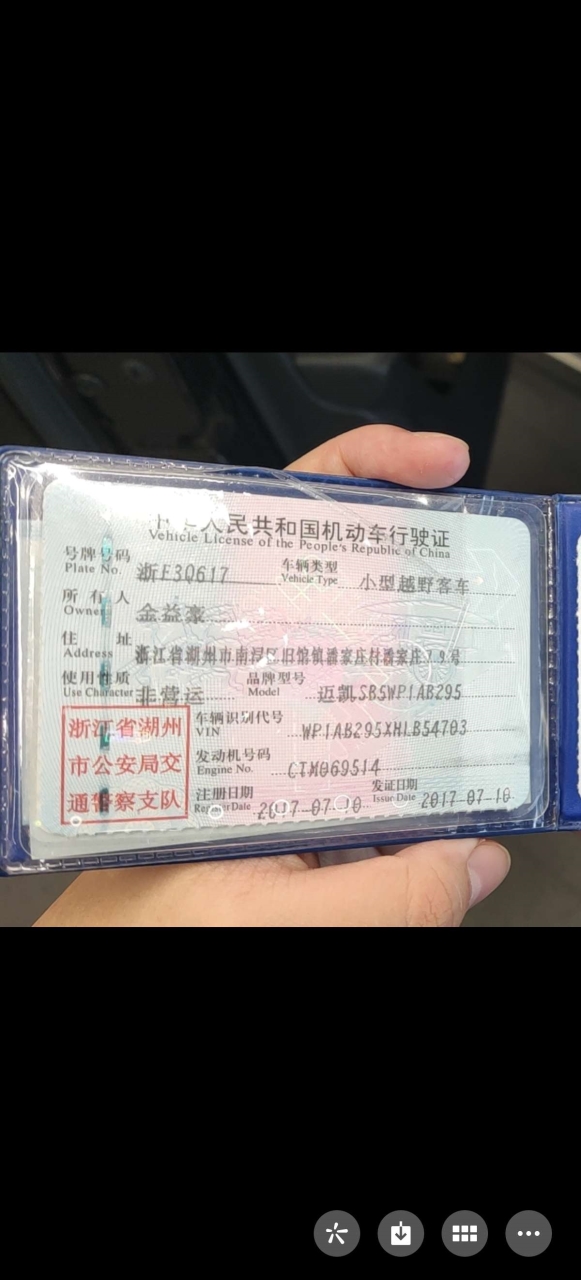 中华人民共和国机动车行驶证
Vehicle License of the People's Republic of China
号牌号码 浙E3Q617 车辆类型 小型越野客车
Plate No. Vehicle Type
所有人 金益豪
Owner
住址 浙江省湖州市南浔区旧馆镇潘家庄村潘家庄79号
Address
使用性质 非营运 品牌型号 迈凯SB5WP1AB295
Use Character Model
浙江省湖州
市公安局交
通警察支队
车辆识别代号 WP1AB295XHLB54703
VIN
发动机号码 CTM069514
Engine No.
注册日期 2017-07-10 发证日期 2017-07-10
Register Date Issue Date